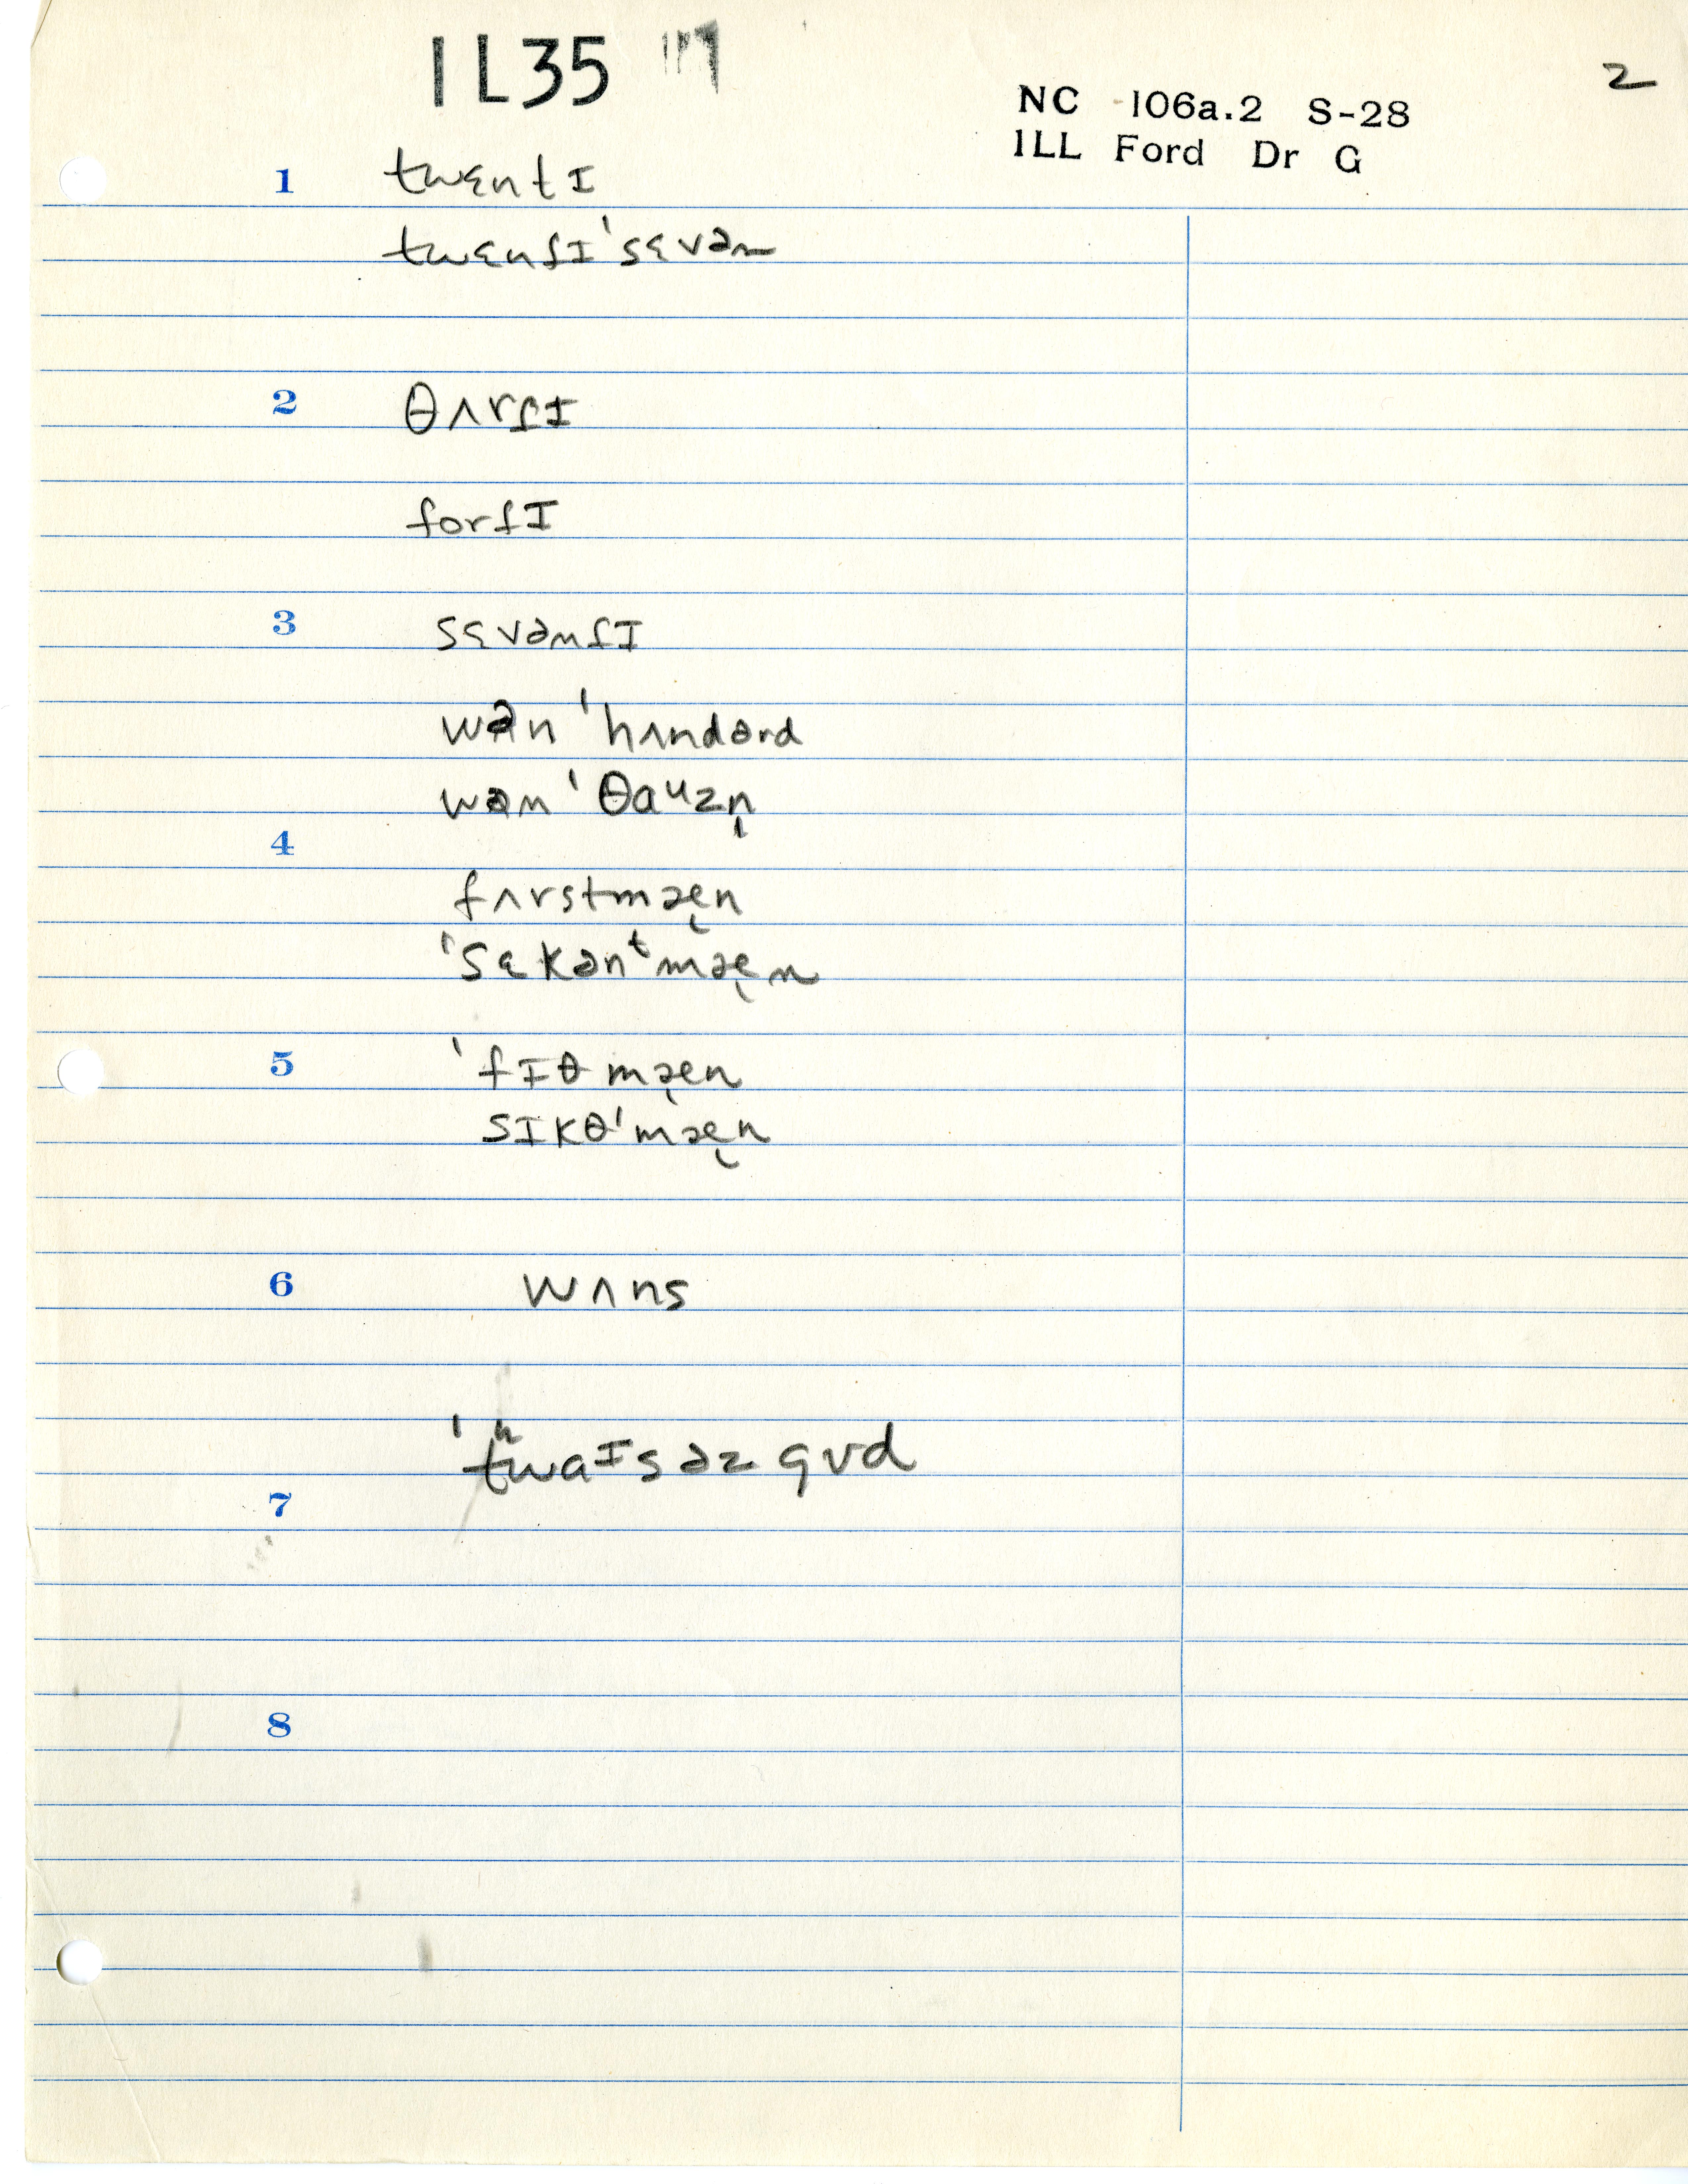 1L35
2
NC -106a.2 S-28
ILL Ford Dr G
1 twɛntɪ
twɛnt̬ɪˈsɛvən
2 θʌrt̬ɪ
fort̬ɪ
3 sɛvənt̬ɪ
wən ˈhʌndərd
wən ˈθaᶸzn̩
4
fʌrstmæ̨n
ˈsɛkənᵗmæ̨n
5 ˈfɪθmæ̨n
sɪkθˈmæ̨n
6 wʌns
ˈtwaᶦsəzgʊd
7
8